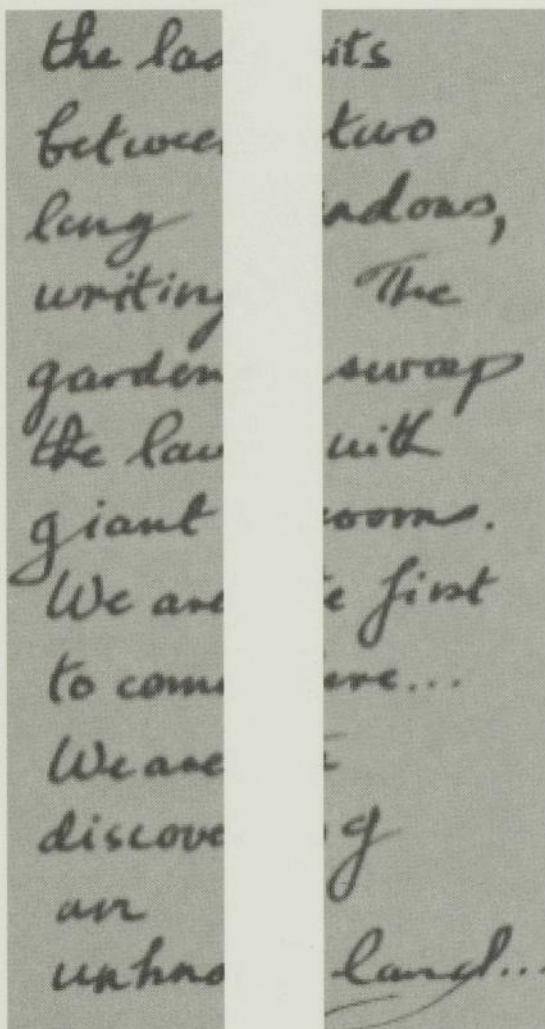 the las its
betwee two
long ndows,
writing The
garden sweep
the law with
giant rooms.
We are e first
to come ere...
We are
discove g
an
unkno land...